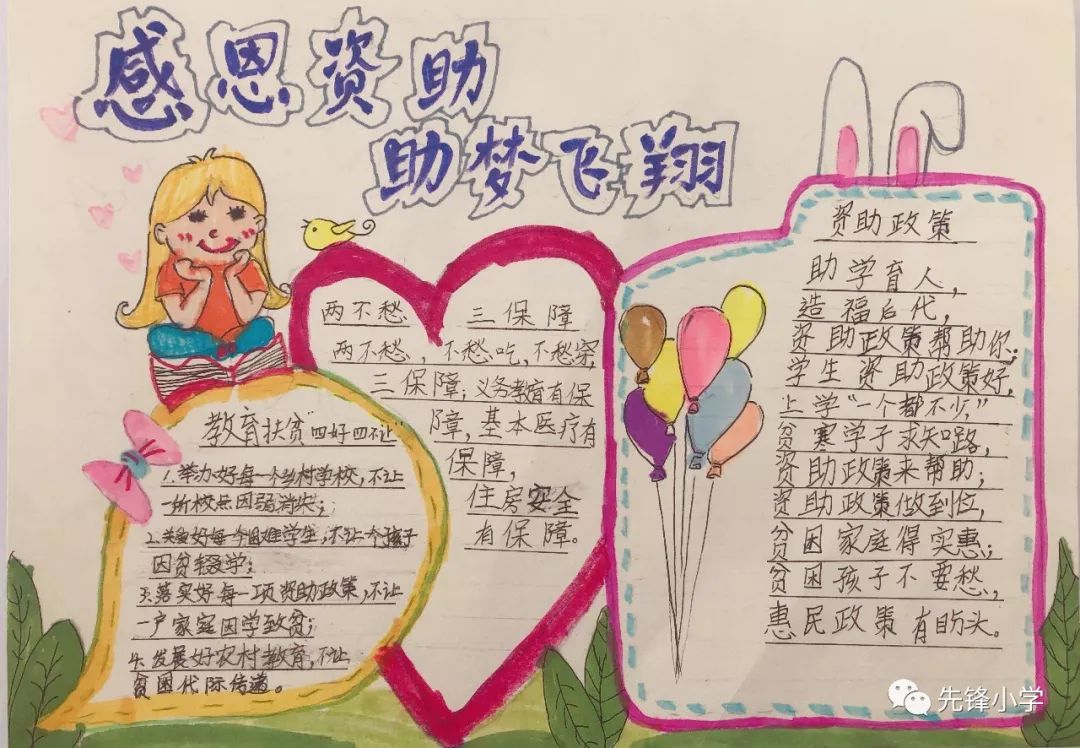 感恩资助
助梦飞翔
教育扶贫"四好四不让"
1.举办好每一个乡村学校,不让
一所校点因弱消失;
2.关爱好每个困难学生,不让一个孩子
因贫辍学;
3.落实好每一项资助政策,不让
一户家庭因学致贫;
4.发展好农村教育,不让
贫困代际传递。
两不愁 三保障
两不愁,不愁吃,不愁穿,
三保障;义务教育有保
障,基本医疗有
保障,
住房安全
有保障。
资助政策
助学育人,
造福后代,
资助政策帮助你;
学生资助政策好,
上学"一个都不少,"
贫寒学子求知路,
资助政策来帮助;
资助政策做到位,
贫困家庭得实惠;
贫困孩子不要愁,
惠民政策有盼头。
先锋小学